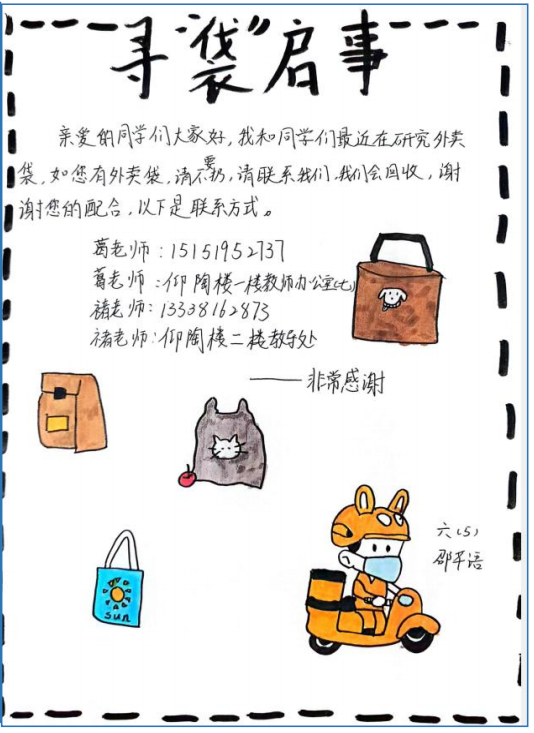 寻“袋”启事
亲爱的同学们大家好，我和同学们最近在研究外卖
袋，如您有外卖袋，请不要扔，请联系我们，我们会回收，谢
谢您的配合，以下是联系方式。
葛老师：15151952737
葛老师：仰陶楼一楼教师办公室(七)
褚老师：13338162873
褚老师：仰陶楼二楼教导处
——非常感谢
sun
六(5)
邵平语